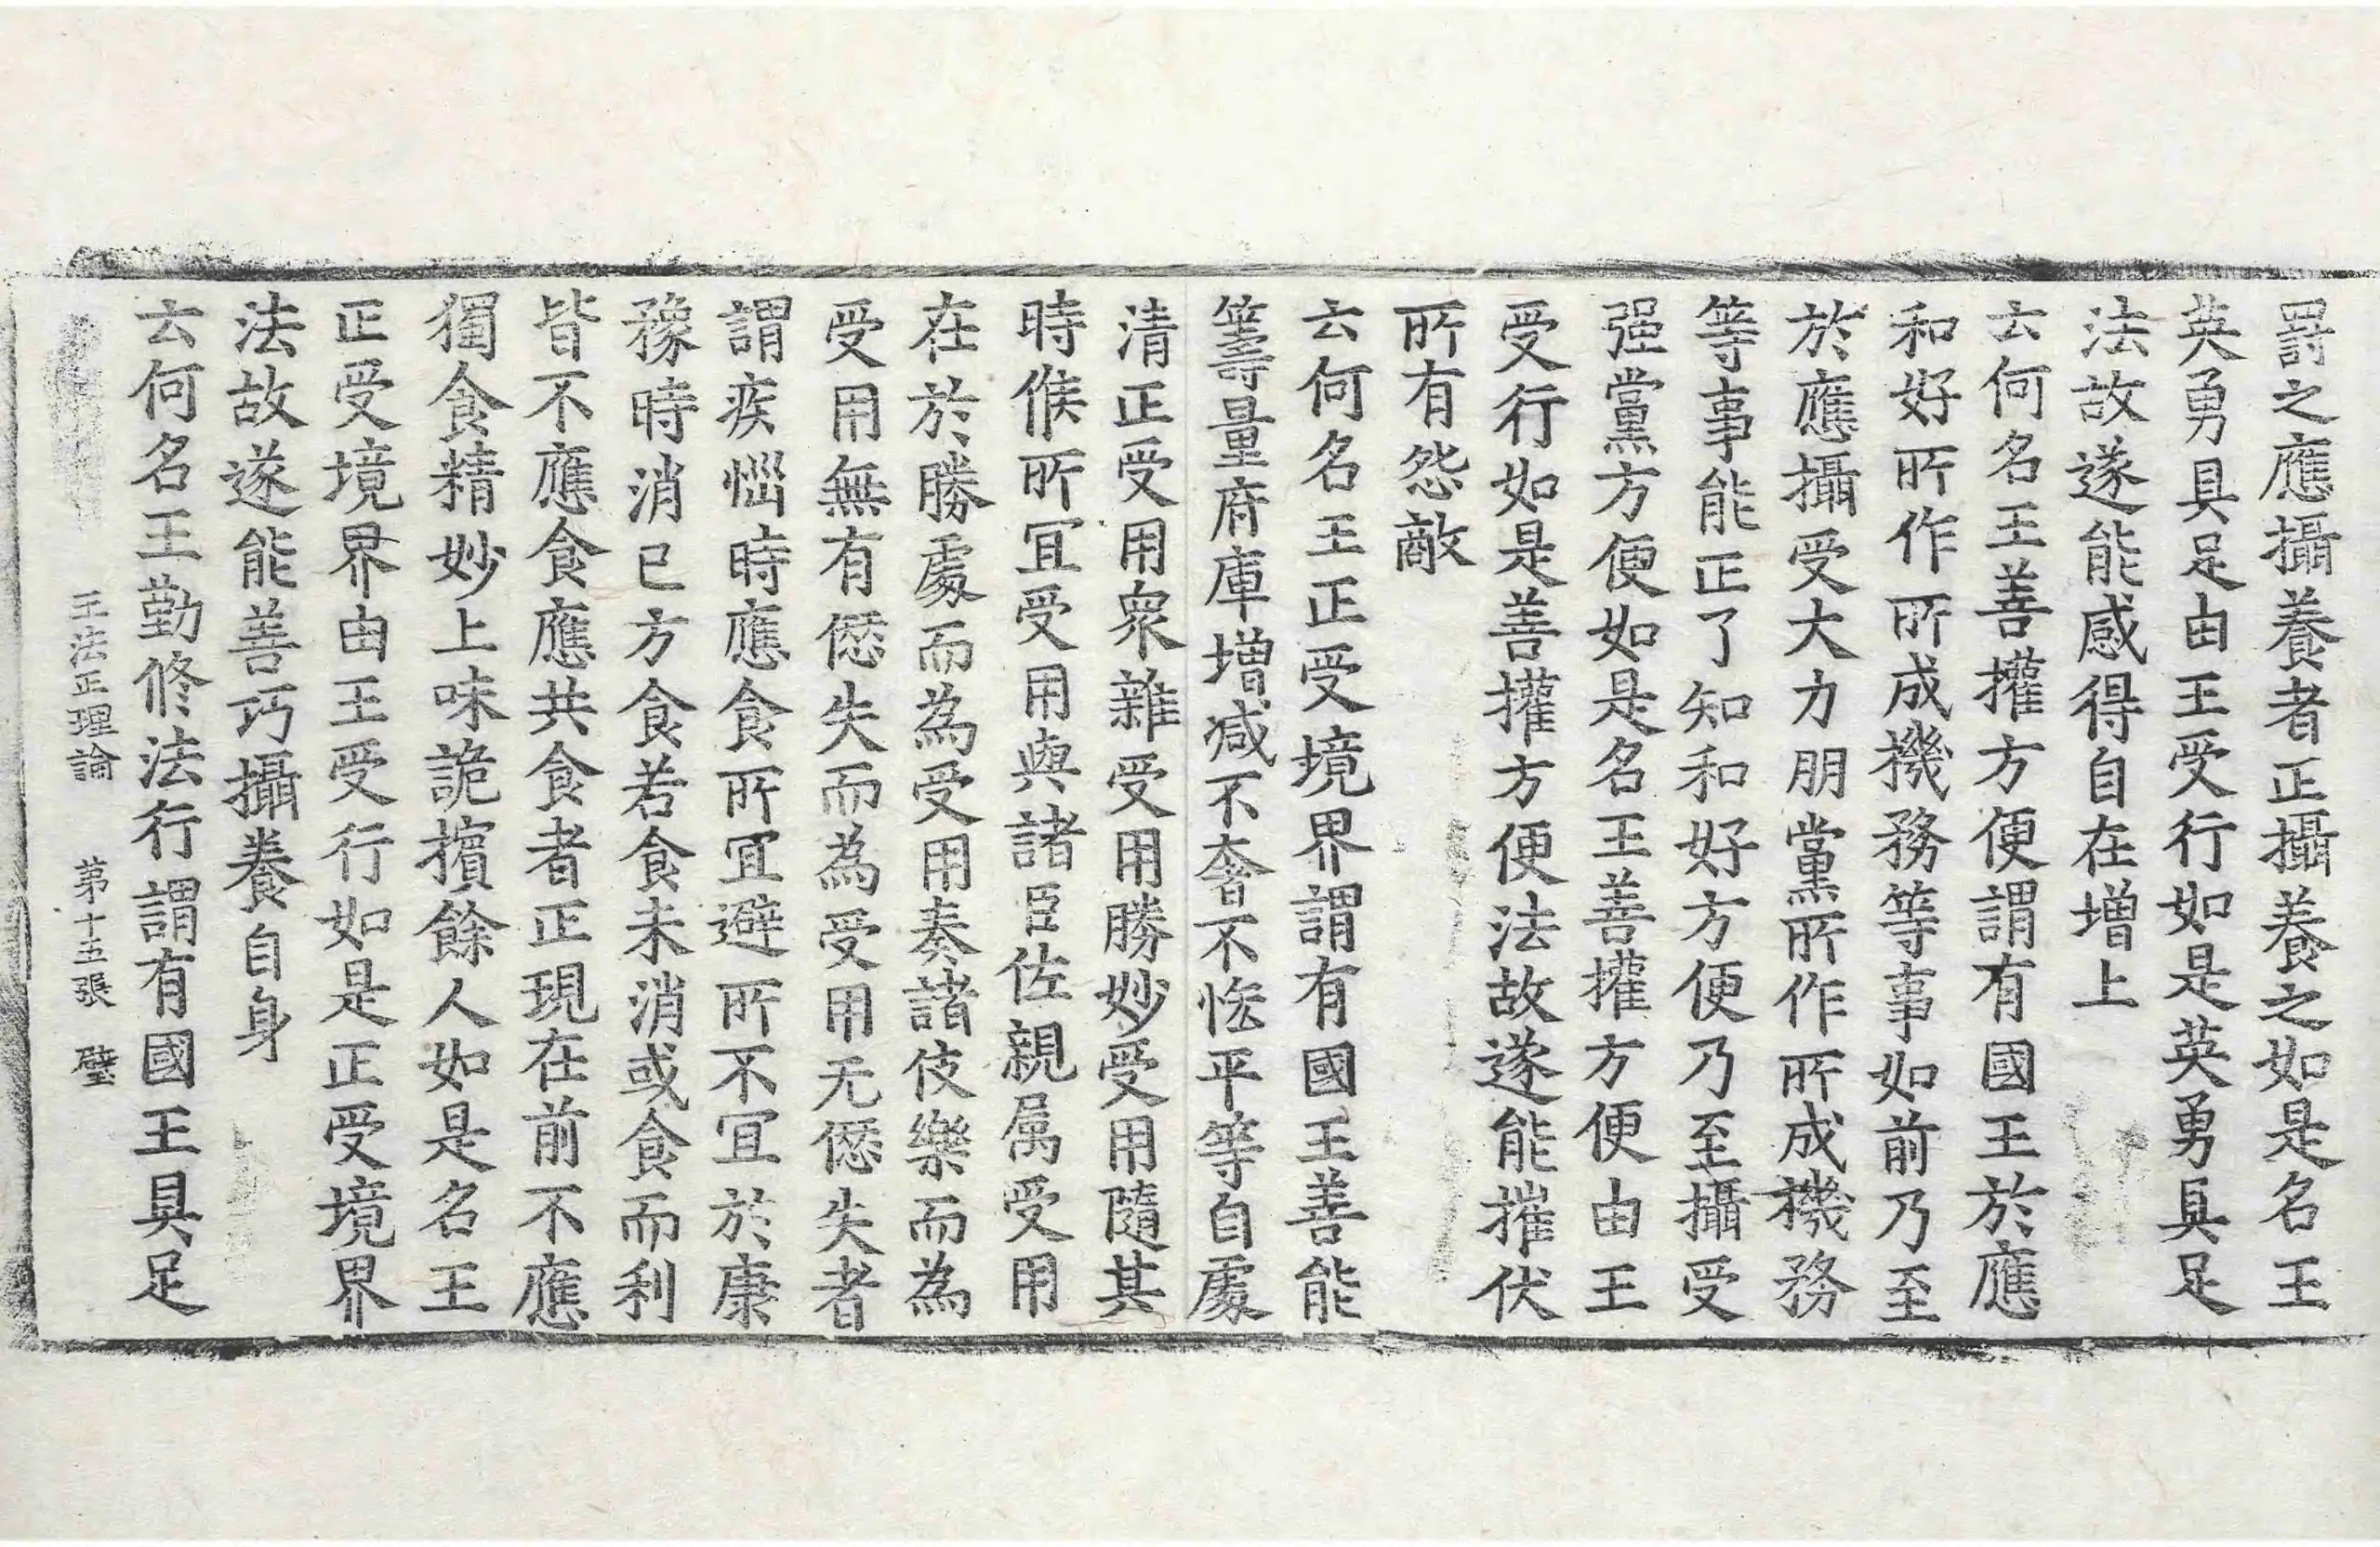 罸之應攝養者正攝養之如是名王
英勇具足由王受行如是英勇具足
法故遂能感得自在增上
云何名王善攉方便謂有國王於應
和好所作所成機務等事如前乃至
於應攝受大力朋黨所作所成機務
等事能正了知和好方便乃至攝受
强黨方便如是名王善攉方便由王
受行如是善攉方便法故遂能摧伏
所有怨敵
云何名王正受境界謂有國王善能
籌量府庫增減不奢不恡平等自處
清正受用衆雜受用勝妙受用隨其
時候所冝受用與諸臣佐親属受用
在於勝處而為受用奏諸伎樂而為
受用無有㥶失而為受用无㥶失者
謂疾惱時應食所冝避所不冝於康
豫時消已方食若食未消或食而利
皆不應食應共食者正現在前不應
獨食精妙上味詭擯餘人如是名王
正受境界由王受行如是正受境界
法故遂能善巧攝養自身
云何名王勤修法行謂有國王具足
王法正理論 第十五張 璧